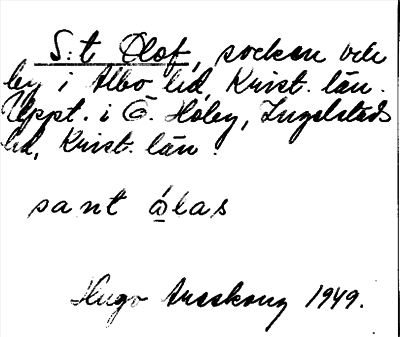 S:t Olof, socken och
by i Albo hd, Krist. län.
Uppt. i Ö. Hoby, Ingelstads
hd, Krist. län.
sant ólas
Hugo Areskoug 1949.